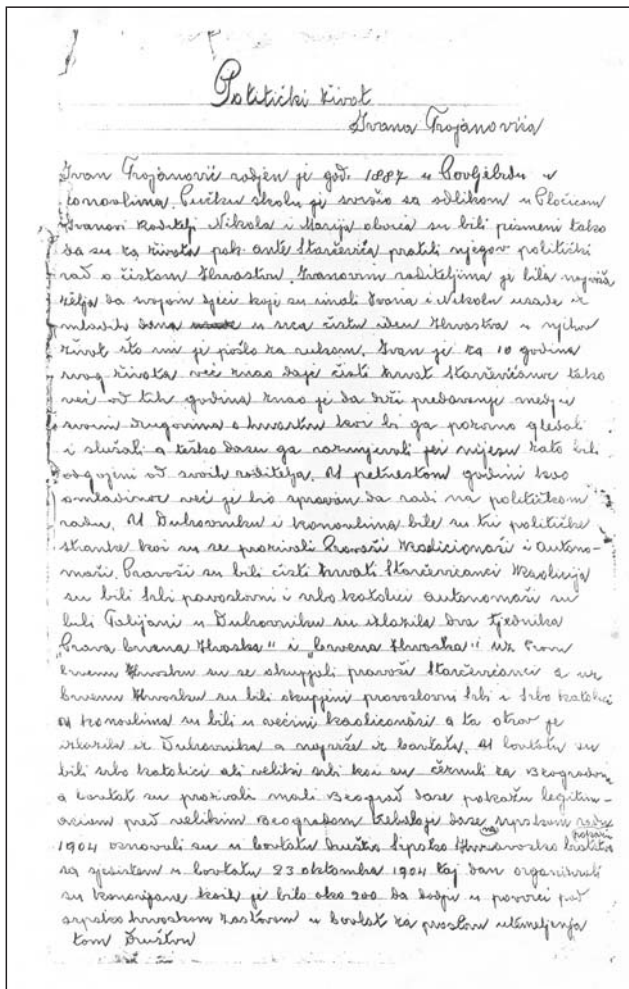 Politički život
Ivana Trojanovića
Ivan Trojanović rodjen je god. 1887 u Popovićima u
konovlima. Pučku školu je svršio sa odlikom u Pločicam
Ivanovi Roditelji Nikola i Marija obvica su bili pismeni tako
da su za života pok. ante Starčevića pratili njegov politički
rad o čistom Hrvastvu. Ivanovim roditeljima je bila najviša
želja da svojom djeci koje su imali Ivana i Nikolu usade iz
mladih dana u srca čistu ideu Hrvastva u njihov
život što im je pošlo za rukom. Ivan je za 10 godina
svog života već znao daje čisti hrvat Starčevićanac tako
već od tih godina znao je da drži predavanje medju
svoim drugovima o hrvastvu koi bi ga pozorno gledali
i slušali a teško dasu ga razumjevali jer nijesu zato bili
odgojeni od svoih roditelja. U petnestom godini kao
omladinac već je bio spravan da radi na političkom
radu. U Dubrovniku i konovlima bile su tri političke
stranke koi su se prozivali Pravaši Koalicionaši i autono-
maši. Pravaši su bili čisti hrvati Starčevićanci Koalicija
su bili Srbi pavoslovni i srbo katolici autonomaši su
buli Talijani u Dubrovniku su izlazila dva tjednika
„Prava Crvena Hrvaska" i „Crvena Hrvaska" uz Pravu
Crvenu Hrvasku su se okupljali pravaši Starčevićanci a uz
Crvenu Hrvasku su bili okupljeni pravoslovni Srbi i Srbo katolici
U konovlima su bili u većini koalicionaši a ta otrov je
izlazila iz Dubrovnika a najviše iz Cavtata. U Covtatu su
bili srbo katolici ali veliki srbi koi su čeznuli za Beogradom
a Covtat su prozivali mali Beograd dase pokažu legitim-
aciom pred velikim Beogradom dase na srpskom radu
1904 osnovali su u Covtatu društvo Sipsko Hrvavosko
sa sjedistem u Covtatu 23 oktomba 1904 taj dan organizirali
su konavljane koih je bilo oko 200 da dodju u povorci pod
srpsko hrvoskom zastavom u Covtat za proslavu utemeljenja
tom Društvu